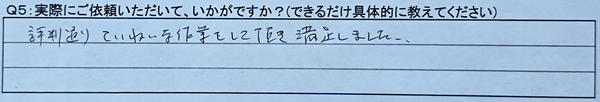 Q5:実際にご依頼いただいて、いかがですか?(できるだけ具体的に教えてください)
評判通りていねいな作業をして頂き満足しました。